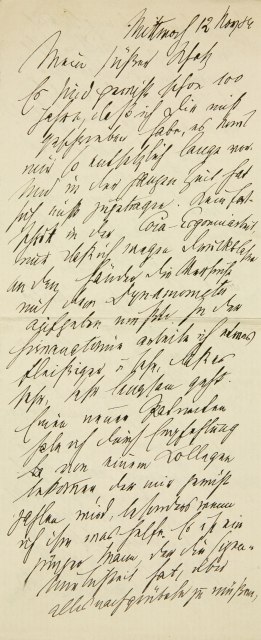 Mittwoch 12 Nov 84
Mein süßer Schatz
Es sind gewiß schon 100
Jahre, daß ich Dir nicht
geschrieben habe, es kommt
mir so entsetzlich lange vor.
Und in der ganzen Zeit hat
sich nichts zugetragen. Kein Fort-
schritt in der Coca-
nur daß ich wegen
an den Händen die Versuche
mit dem Dynamometer
aufgeben mußte. In der
Hirnanatomie arbeite ich etwas
fleißiger u sehe, daß es
sehr, sehr langsam geht.
Einen neuen
habe ich durch Empfehlung
von einem Collegen
bekommen der mir gewiß
zahlen wird, besonders wenn
ich ihm was helfe. Es ist ein
junger Mann, der die
hat, über
alles nachgrübeln zu müssen,